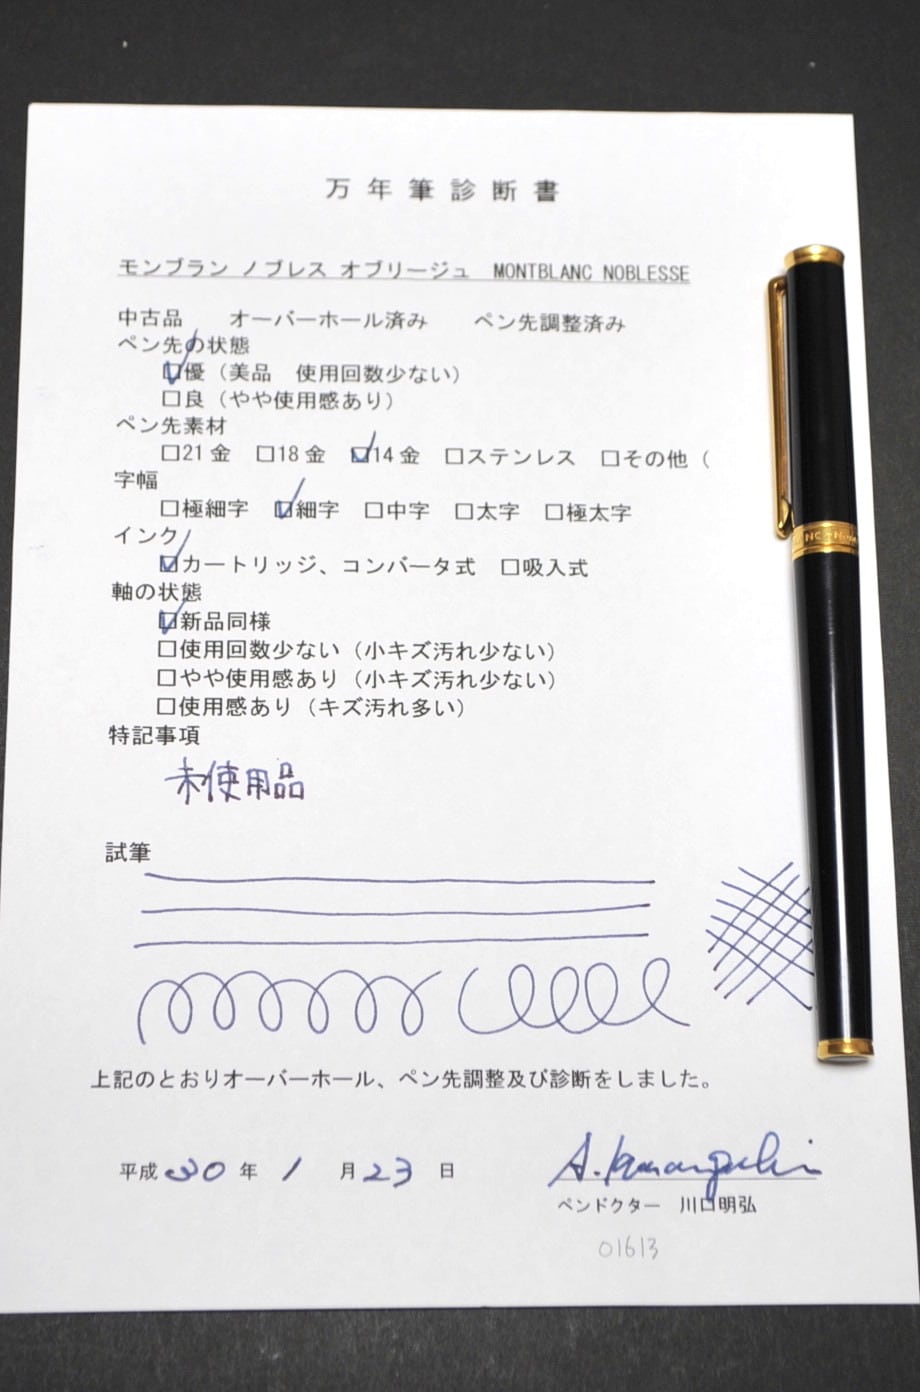 万年筆診断書
モンブラン ノブレス オブリージュ MONTBLANC NOBLESSE
中古品 オーバーホール済み ペン先調整済み
ペン先の状態
☑優（美品 使用回数少ない）
□良（やや使用感あり）
ペン先素材
□21金 □18金 ☑14金 □ステンレス □その他（
字幅
□極細字 ☑細字 □中字 □太字 □極太字
インク
☑カートリッジ、コンバータ式 □吸入式
軸の状態
☑新品同様
□使用回数少ない（小キズ汚れ少ない）
□やや使用感あり（小キズ汚れ少ない）
□使用感あり（キズ汚れ多い）
特記事項
未使用品
試筆
上記のとおりオーバーホール、ペン先調整及び診断をしました。
平成30年1月23日
ペンドクター 川口明弘
01613